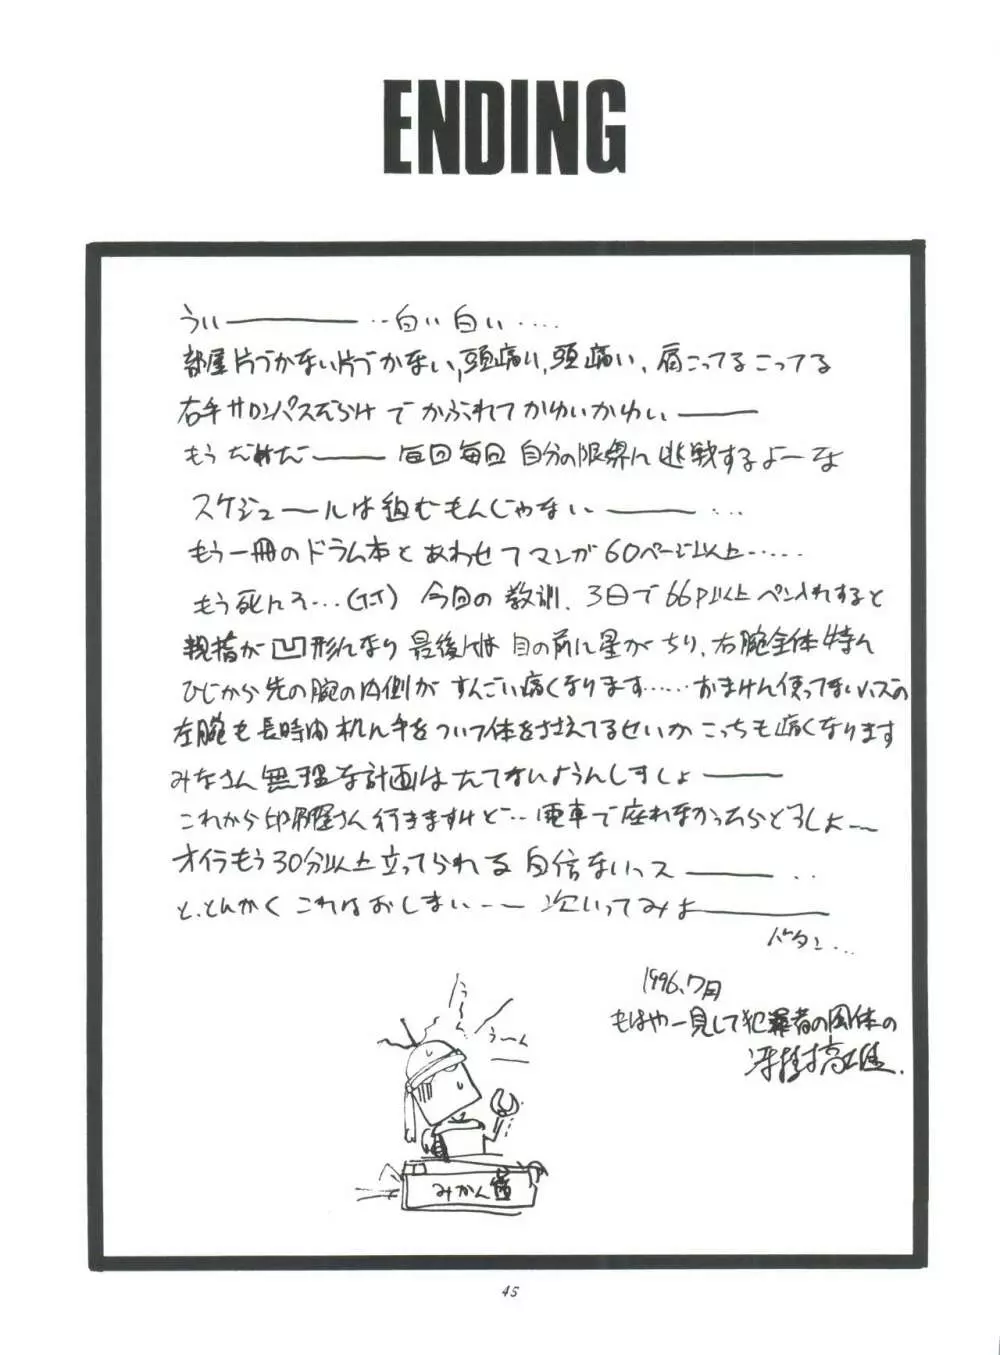 ENDING
うぃ―――‥白い白い‥‥
部屋片づかない片づかない,頭痛い,頭痛い、肩こってるこってる
右手サロンパスだらけでかぶれてかゆいかゆい――
もうだめだ―― 毎回毎回自分の限界に挑戦するよーな
スケジュールは組むもんじゃない――‥‥
もう一冊のドラム本とあわせてマンガ60ページ以上‥‥‥
もう死んぞ…(T-T) 今回の教訓、3日で66P以上ペン入れすると
親指が凹形になり最後には目の前に星がちり、右腕全体特に
ひじから先の腕の内側がすんごい痛くなります……おまけに使ってないハズの
左腕も長時間机に手をついて体をささえてるせいかこっちも痛くなります
みなさん無理な計画はたてないようにしましょ――
これから印刷屋さん行きますけど‥電車で座れなかったらどうしよ〜
オイラもう30分以上立ってられる自信ないっス――‥
と、とにかくこれはおしまい―― 次いってみよ―――
バタン…
1996、7月
もはや一見して犯罪者の風体の
冴樹高雄.
う〜ん
う〜ん
みかん箱
45